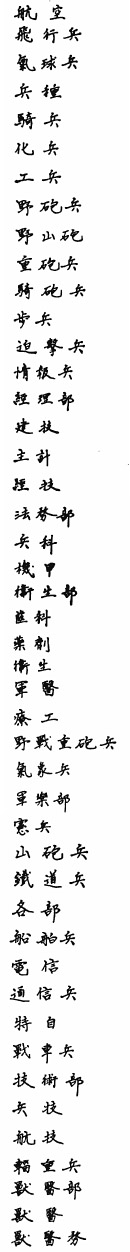 航空
飛行兵
氣球兵
兵種
騎兵
化兵
工兵
野砲兵
野山砲
重砲兵
騎砲兵
歩兵
迫撃兵
情報兵
經理部
建技
主計
經技
法務部
兵科
機甲
衛生部
歯科
薬剤
衛生
軍醫
療工
野戰重砲兵
氣象兵
軍樂部
憲兵
山砲兵
鐵道兵
各部
船舶兵
電信
通信兵
特自
戰車兵
技術部
兵技
航技
輜重兵
獸醫部
獸醫
獸醫務